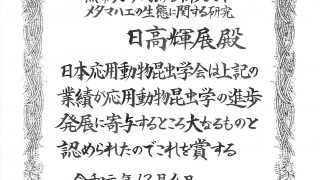 メタマハエの生態に関する研究
日高輝展殿
日本応用動物昆虫学会は上記の
業績が応用動物昆虫学の進歩
発展に寄与するところ大なるものと
認められたのでこれを賞する